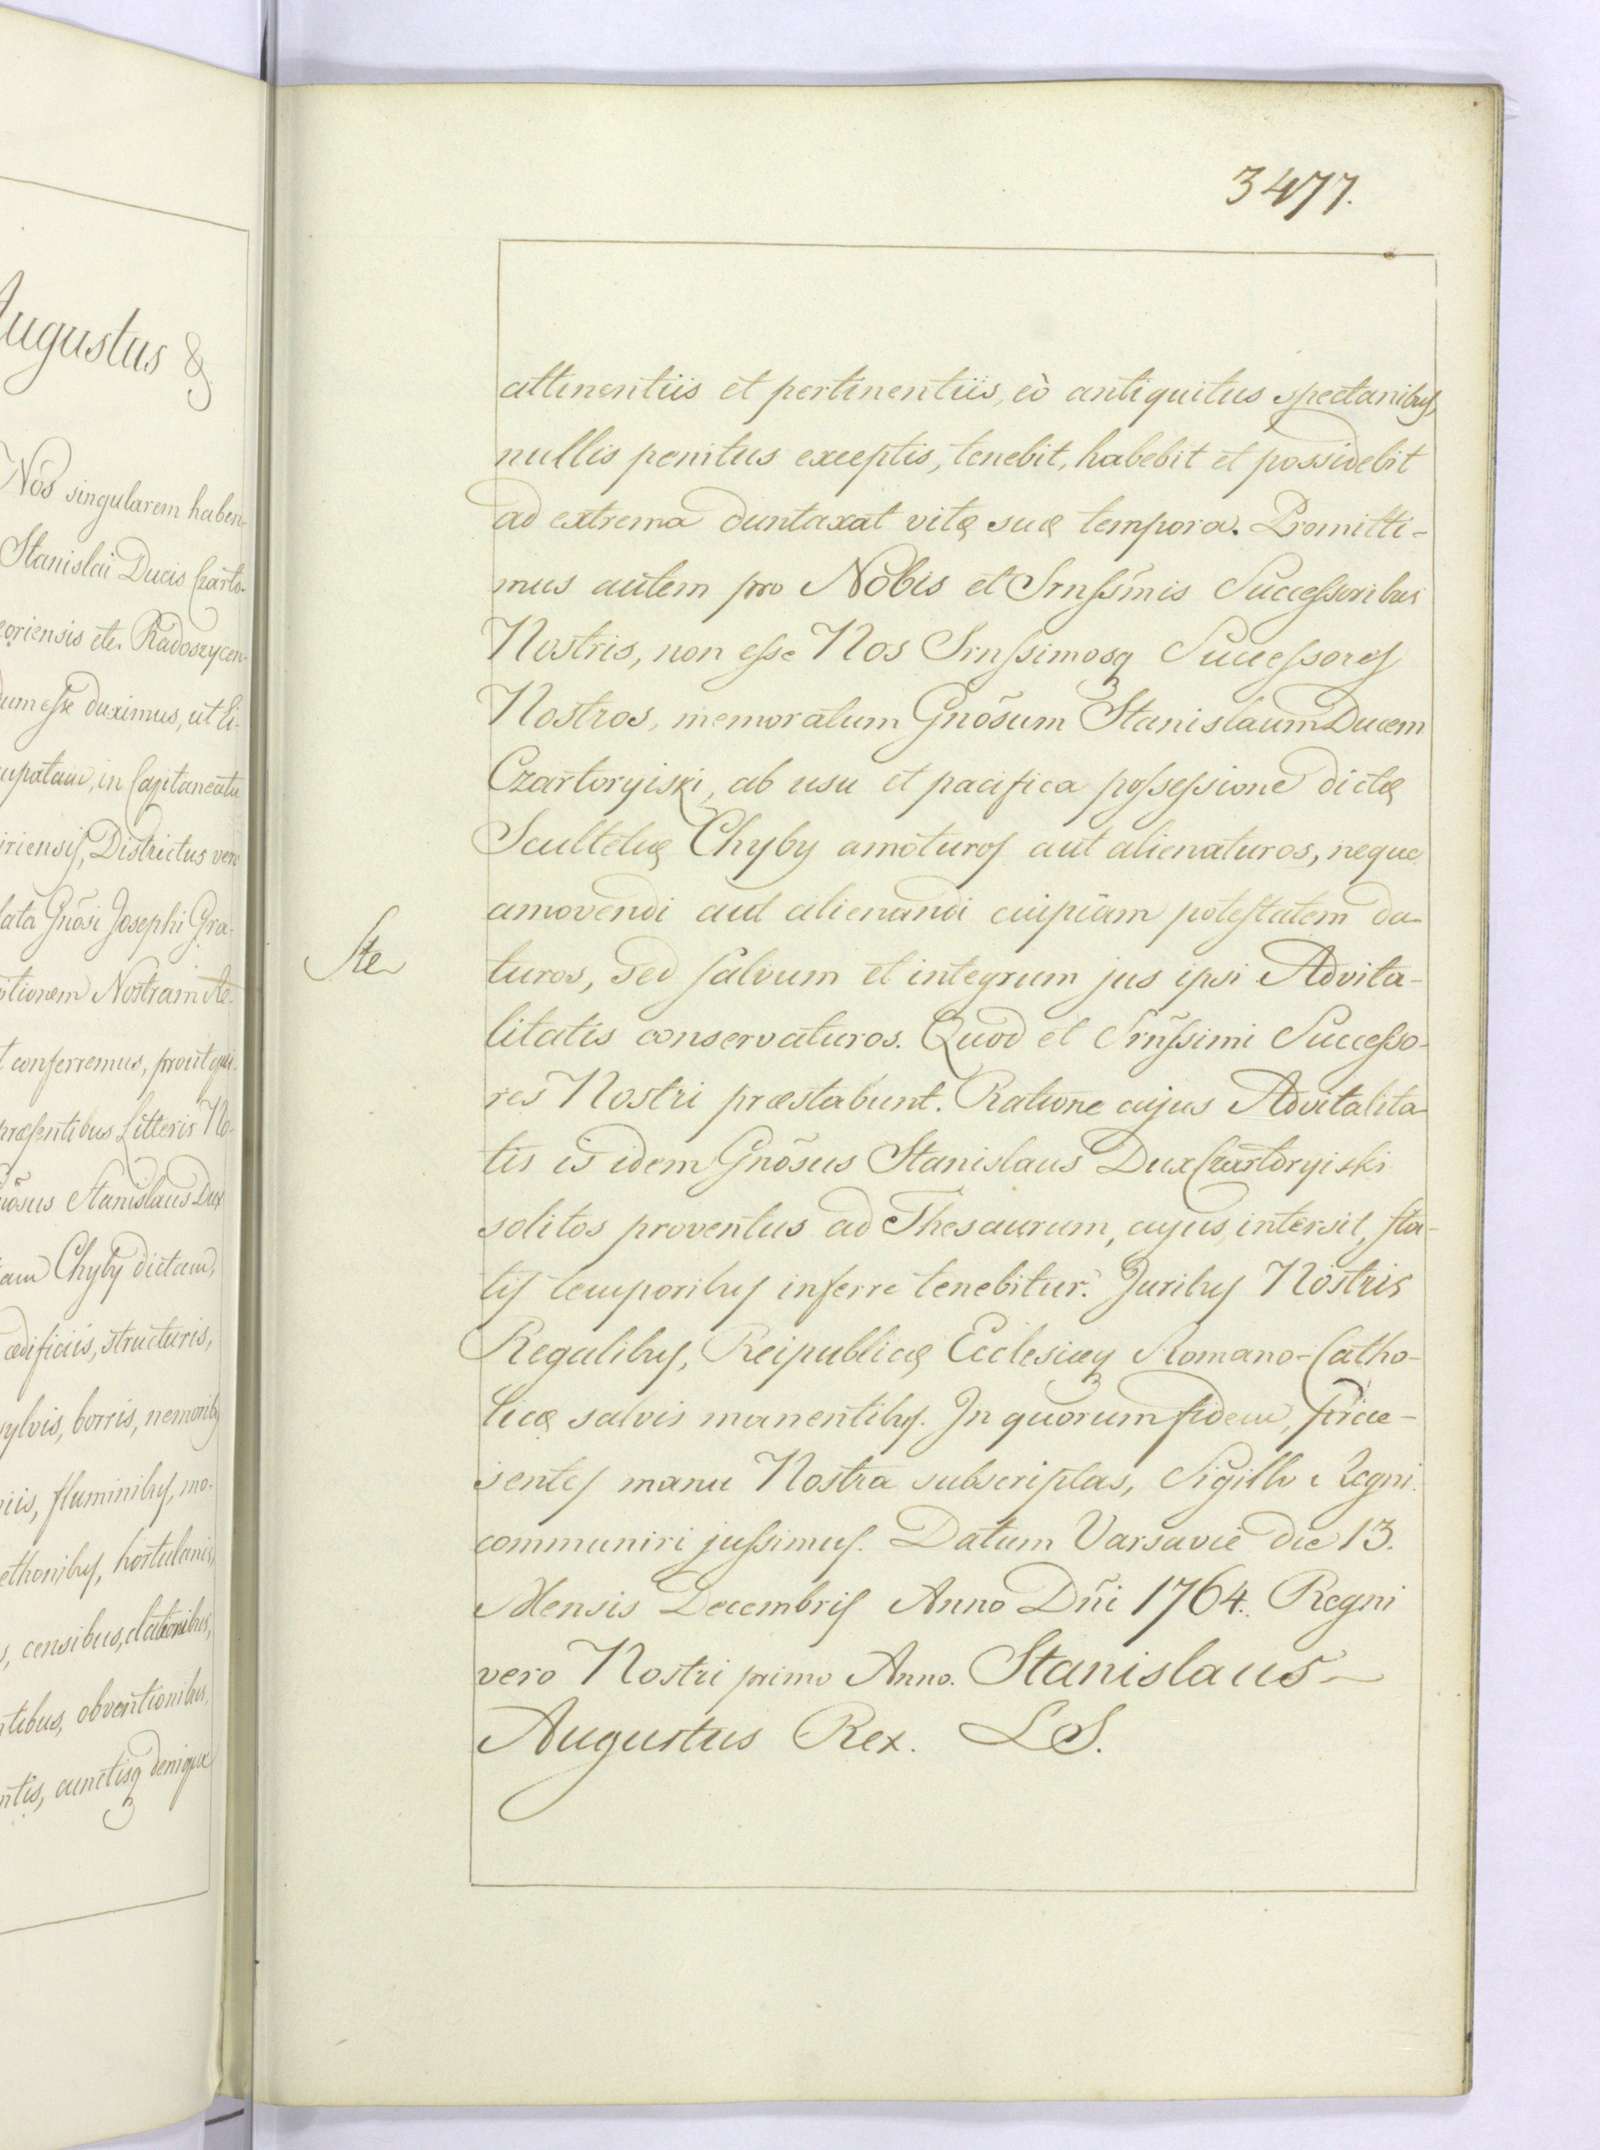 Augustus &
Nõs singularem haben-
Stanislai Ducis Czarto-
oriensis etc. Radoszycen-
dum esse duximus, ut li-
cupatam, in Capitaneatu
iriensis, Districtus vero
lata Gnõsi Josephi Gra-
ptionem Nostram Ad-
t conferremus, prout qui-
præsentibus Litteris No-
nõsus Stanislaus Dux
iam Chyby dictam,
ædificiis, structuris,
sylvis, borris, nemoribg
riis, fluminibus, mo-
ethonibus, hortulanis,
s, censibus, dationibus,
ntibus, obventionibus,
ntis, cunctisq denique
3477.
attinentiis et pertinentiis, eò antiquitus spectanibus,
nullis penitus exceptis, tenebit, habebit et possidebit
ad extrema duntaxat vitę suæ tempora. Promitti-
mus autem pro Nobis et Srnssimis Successoribus
Nostris, non esse Nos Srnssimosq Successores
Nostros, memoratum Gnõsum Stanislaum Ducem
Czartoryiski, ab usu et pacifica possessione dictæ
Scultetiæ Chyby amoturos aut alienaturos, neque
amovendi aut alienandi cuipiam potestatem da-
turos, sed salvum et integrum jus ipsi Advita-
litatis conservaturos. Quod et Srñssimi Successo-
res Nostri præstabunt. Ratione cujus Advitalita-
tis is idem Gnõsus Stanislaus Dux Czartoryiski
solitos proventus ad Thesaurum, cujus intersit, sta-
tis temporibus inferre tenebitur. Juribus Nostris
Regalibus, Reipublicæ Ecclesiæq Romano-Catho-
licæ salvis manentibus. In quorum fidem, præ-
sentes manu Nostra subscriptas, Sigillo Regni
communiri jussimus. Datum Varsavie die 13.
Mensis Decembris Anno Dñi 1764. Regni
vero Nostri primo Anno. Stanislaus-
Augustus Rex. LS.
Ste